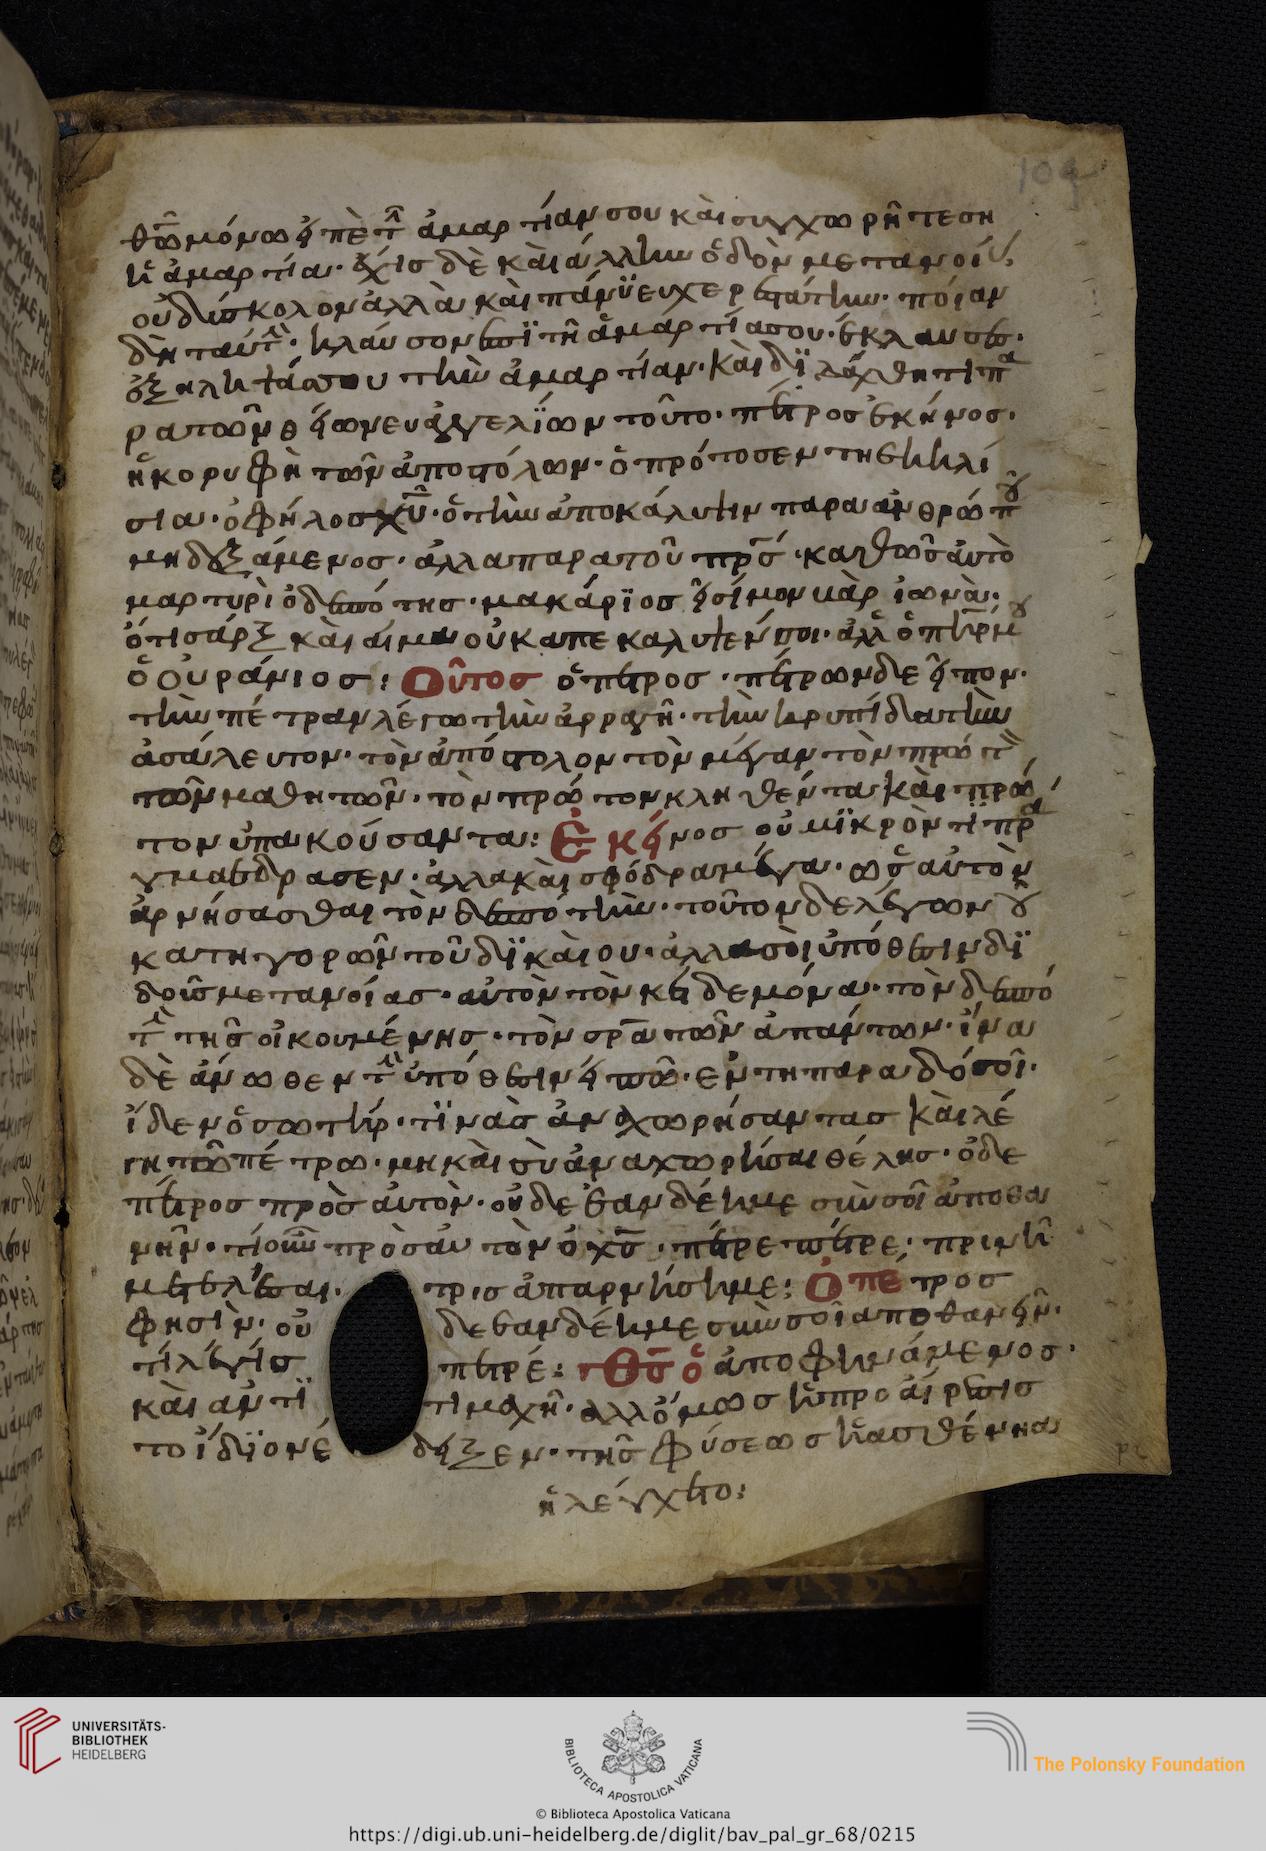 104
θῶ μόνω εἰπὲ τ ἁμαρτίαν σου καὶ συγχωρῆτε ση
ἡ ἁμαρτία· ἔχις δὲ καὶ ἄλλην ὁδὸν μετανοί
οὐ δύσκολον ἀλλὰ καὶ πάνϋ εὐχερεστάτην· πόιαν
δὴ ταύτ· κλαύσον ἐπϊ τῆ ἁμαρτία σου· ἔκλαυσε·
ἐξηλητάσου τὴν ἁμαρτίαν· καὶ δϊλάχθητι π
ρα τῶν θείων εὐαγγελϊων τοῦτο· πέτρος ἐκήνος·
ἡ κορυφὴ τῶν ἀποστόλων· ὁ πρότος ἐν τη ἐκκλι
σια· ὁ φήλος χυ· ὁ τὴν ἀποκάλυψιν παρα ἀνθρώπ
μη δεξάμενος· ἀλλα παρα τοῦ πρσ· καθῶς αὐτὸ
μαρτυρὶ ὁ δεσπότης· μακάρϊος εἶ σίμον βὰρ ἰωνὰ·
ὅτι σάρξ καὶ αίμα οὐκ απεκαλυψέν σοι· ἀλλ ὁ πηρ μ
ὁ οὐράνιος: Οὗτος ὁ πέτρος· πέτρον δε εἶπον·
τὴν πέτραν λέγω τὴν ἀρραγῆ· τὴν κρυπίδα τὴν
ἀσάλευτον· τὸν ἀπόστολον τὸν μέγαν τὸν πρῶτ
τῶν μαθητῶν· τὸν πρῶτον κληθέντα καὶ πρώ
τον ὑπακούσαντα: Ἐκείνος οὐ μϊκρὸν τϊ πρα
γμα ἔδρασεν· ἀλλα καὶ σφόδρα μέγα· ὡς αὐτὸν
ἀρνήσασθαι τὸν δεσπότην· τοῦτον δε λέγων οὐ
κατηγορῶν τοῦ δϊκαίου· ἀλλα σὸι ὑπόθεσιν δϊ
δοῦς μετανοίας· αὐτὸν τὸν κηδεμόνα· τὸν δεσπό
τ τῆς οἰκουμένης· τὸν σρα τῶν ἁπάντων· ἵνα
δὲ ἄνωθεν τ ὑπόθεσιν εἴπω· ἐν τη παραδόσοῖ·
ἴδεν ὁ σωτὴρ· τϊνὰς ἀναχωρήσαντας καὶ λέ
γη τῶ πέτρω· μη καὶ σὺ ἀναχωρήσαι θέλης· ὁ δε
πέτρος πρὸς αὐτὸν· οὐδε ἐὰν δέημε σὺν σοῖ ἀποθα
νῆν· τί οὖν πρὸς αὐτὸν ὁ χς· πέτρε πέτρε· πριν ἢ
με τρις ἀπαρνήσημε: Ὁ πέτρος
φησὶν· οὐ δε ἐὰν δέημε σὺν σοῖ αποθανεῖν·
τί λέγῖς πέτρέ: Θς ὁ ἀποφηνάμενος·
καὶ ἀντϊ τιμαχῆ· αλλόμως ἡ προαίρεσις
το ίδϊον ἐ δείξεν· τῆς φύσεως ἡ ασθένηα
ἠλέγχετο:
UNIVERSITÄTS-
BIBLIOTHEK
HEIDELBERG
BIBLIOTECA APOSTOLICA VATICANA
The Polonsky Foundation
© Biblioteca Apostolica Vaticana
https://digi.ub.uni-heidelberg.de/diglit/bav_pal_gr_68/0215